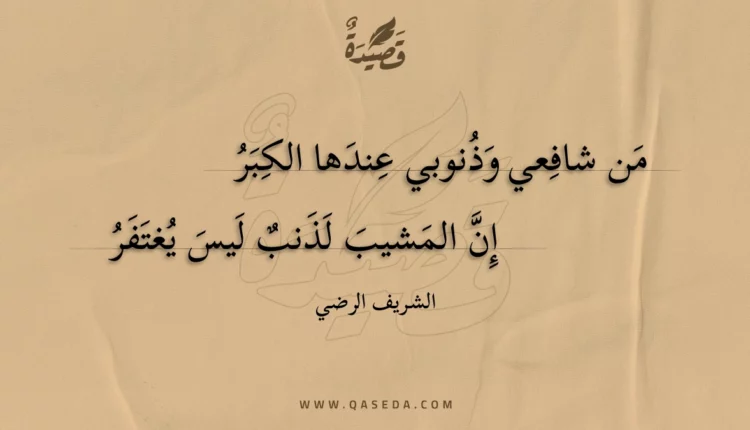 قَصِيدَةٌ
مَن شافِعي وَذُنوبي عِندَها الكِبَرُ
إِنَّ المَشيبَ لَذَنبٌ لَيسَ يُغتَفَرُ
الشريف الرضي
WWW.QASEDA.COM